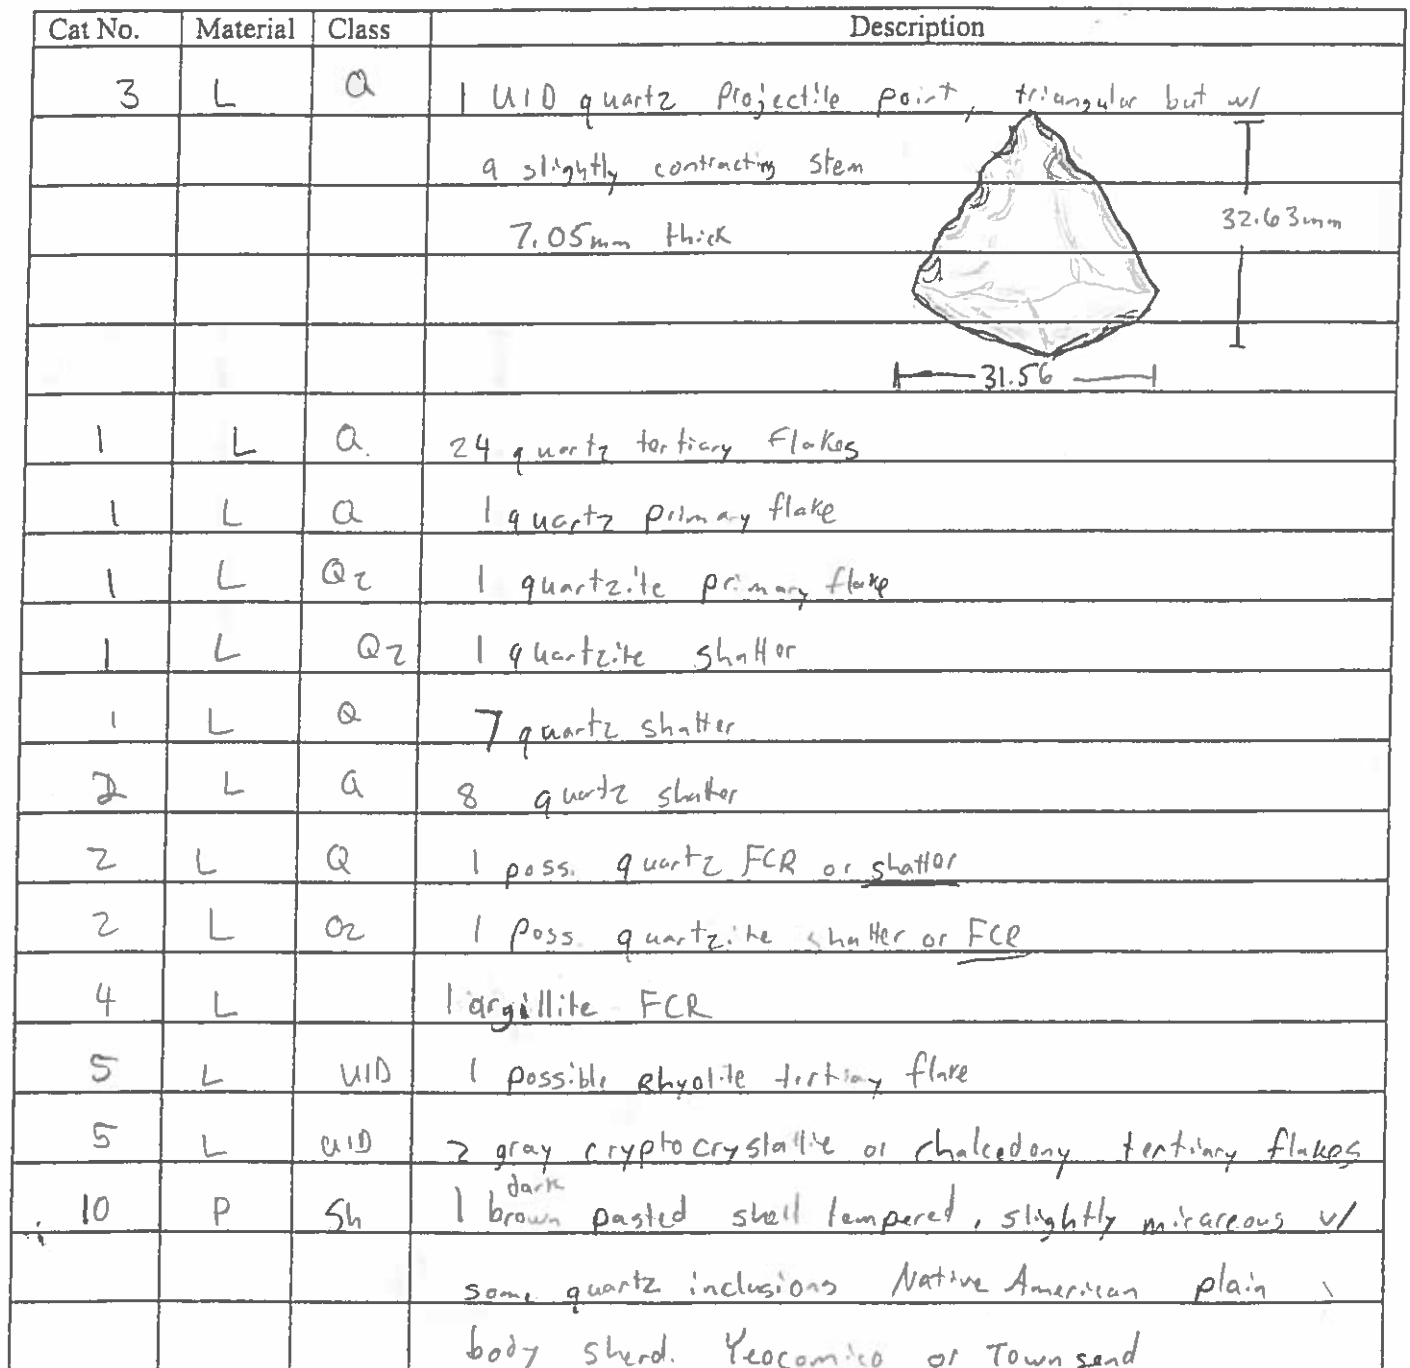 Cat No. Material Class Description
3 L Q 1 UID quartz Projectile point, triangular but w/
a slightly contracting stem
7.05mm thick
32.63mm
31.56
1 L Q. 24 quartz tertiary Flakes
1 L Q 1 quartz primary flake
1 L Qz 1 quartzite primary flake
1 L Qz 1 quartzite shatter
1 L Q 7 quartz shatter
2 L Q 8 quartz shatter
2 L Q 1 poss. quartz FCR or shatter
2 L Qz 1 Poss. quartzite shatter or FCR
4 L 1 argillite FCR
5 L UID 1 possible Rhyolite tertiary flake
5 L UID 2 gray cryptocrystallie or chalcedony tertiary flakes
dark
10 P Sh 1 brown pasted shell tempered, slightly micareous w/
some quartz inclusions Native American plain
body sherd. Yeocomico or Townsend